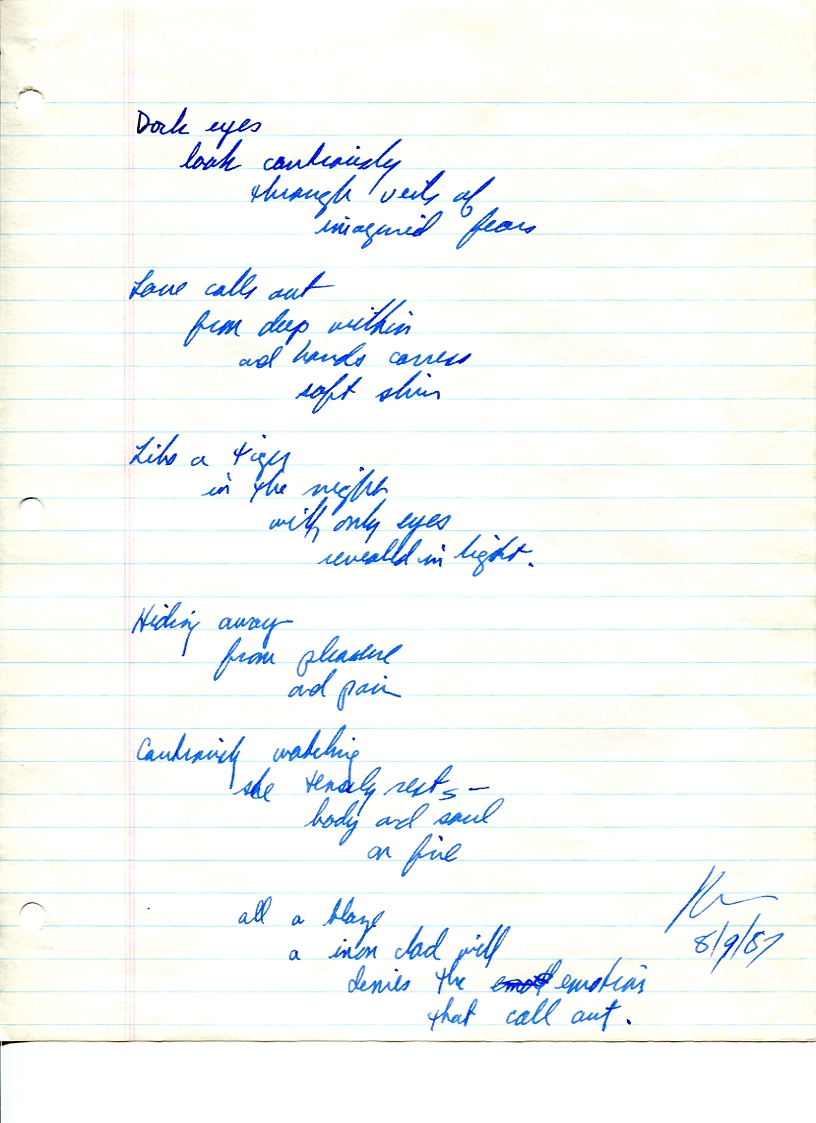 Dark eyes
look cautiously
through veils of
imagined fears
Love calls out
from deep within
and hands carress
soft skin
Like a tiger
in the night
with only eyes
revealed in light.
Hiding away
from pleasure
and pain
Cautiously watching
she tensely rests –
body and soul
on fire
all a blaze
a iron clad will
denies the emotions
that call out.
8/9/87